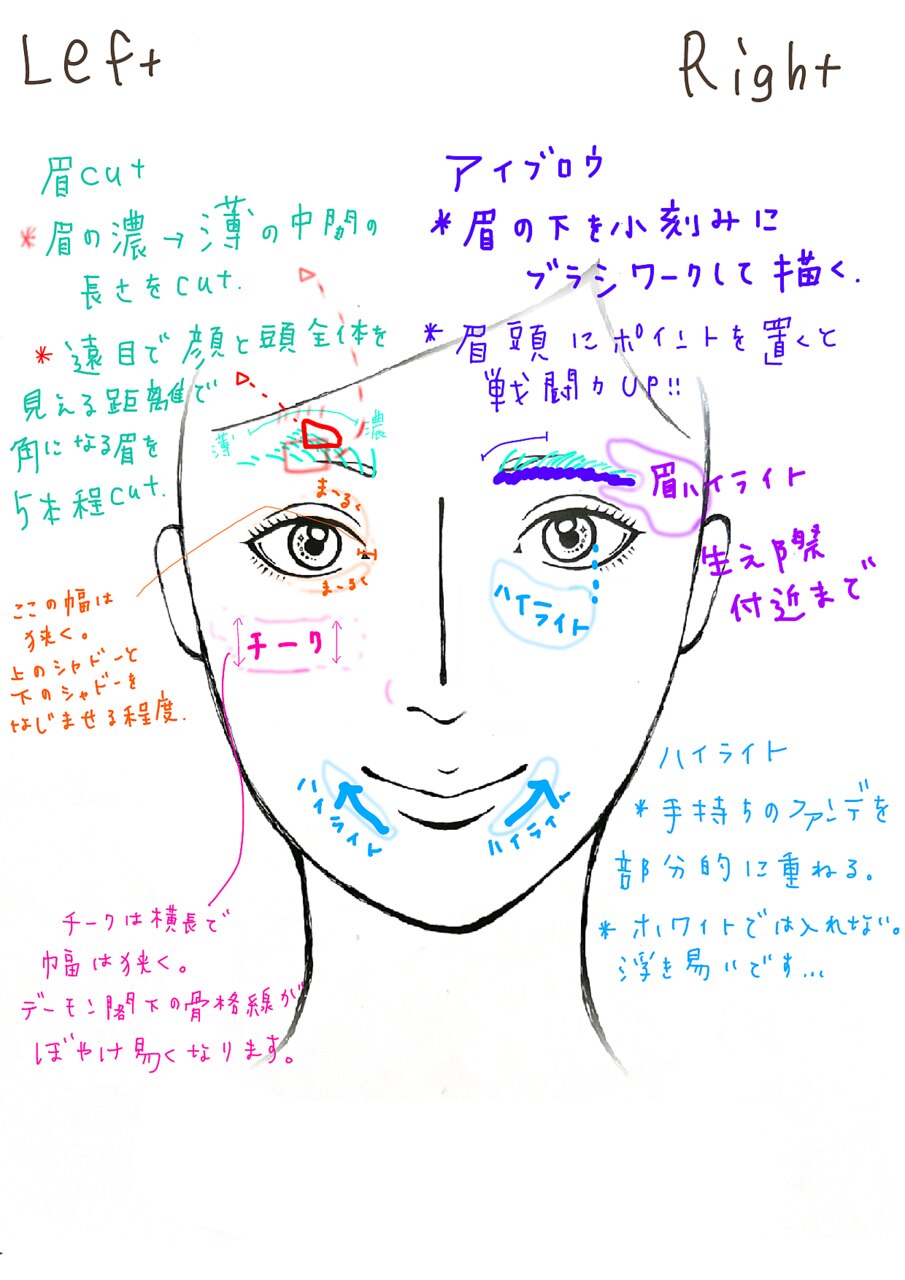 Left
Right
眉cut
*眉の濃→薄の中間の
長さをcut.
*遠目で顔と頭全体を
見える距離で
角になる眉を
5本程cut.
アイブロウ
*眉の下を小刻みに
ブラシワークして描く.
*眉頭にポイントを置くと
戦闘力UP!!
薄
濃
まーるく
まーるく
眉ハイライト
生え際
付近まで
ここの幅は
狭く。
上のシャドーと
下のシャドーを
なじませる程度.
チーク
ハイライト
ハイライト
ハイライト
ハイライト
*手持ちのファンデを
部分的に重ねる。
*ホワイトでは入れない。
浮き易いです...
チークは横長で
幅は狭く。
デーモン閣下の骨格線が
ぼやけ易くなります。